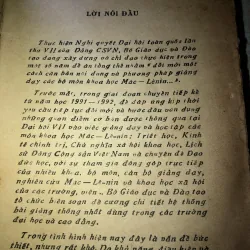 LỜI NÓI ĐẦU
Thực hiện Nghị quyết Đại hội toàn quốc lần
thứ VII của Đảng CSVN, Bộ Giáo dục và Đào
tạo đang xây dựng và chỉ đạo thực hiện trong
một số năm đề án tổng thể nhằm đổi mới một
cách căn bản nội dung và phương pháp giảng
dạy các bộ môn khoa học Mác – Lênin...
Trước mắt, trong giai đoạn chuyển tiếp kể
từ năm học 1991 - 1992, để đáp ứng kịp thời
yêu cầu tiếp tục đổi mới và bước đầu vận dụng
những quan điểm cơ bản được thông qua tại
Đại hội VII vào việc giảng dạy và học tập các
môn khoa học Mác – Lênin: Triết học, Kinh
tế chính trị, Chủ nghĩa xã hội khoa học, Lịch
sử Đảng Cộng sản Việt Nam và chuyên đề Đạo
đức học, với sự tham gia đóng góp trực tiếp
của nhiều khoa, bộ môn, cán bộ giảng dạy,
nghiên cứu Mác – Lênin và khoa học xã hội
của các trường, viện, Bộ Giáo dục và Đào tạo
tổ chức biên soạn đề cương chi tiết hệ thống
bài giảng thống nhất dùng trong các trường
đại học và cao đẳng.
Trong tình hình hiện nay đây là vấn đề bức
thiết, nhưng rất khó.